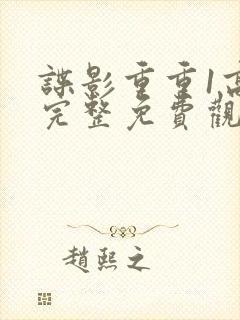 諜影重重1高
完整免費觀
趙熙之